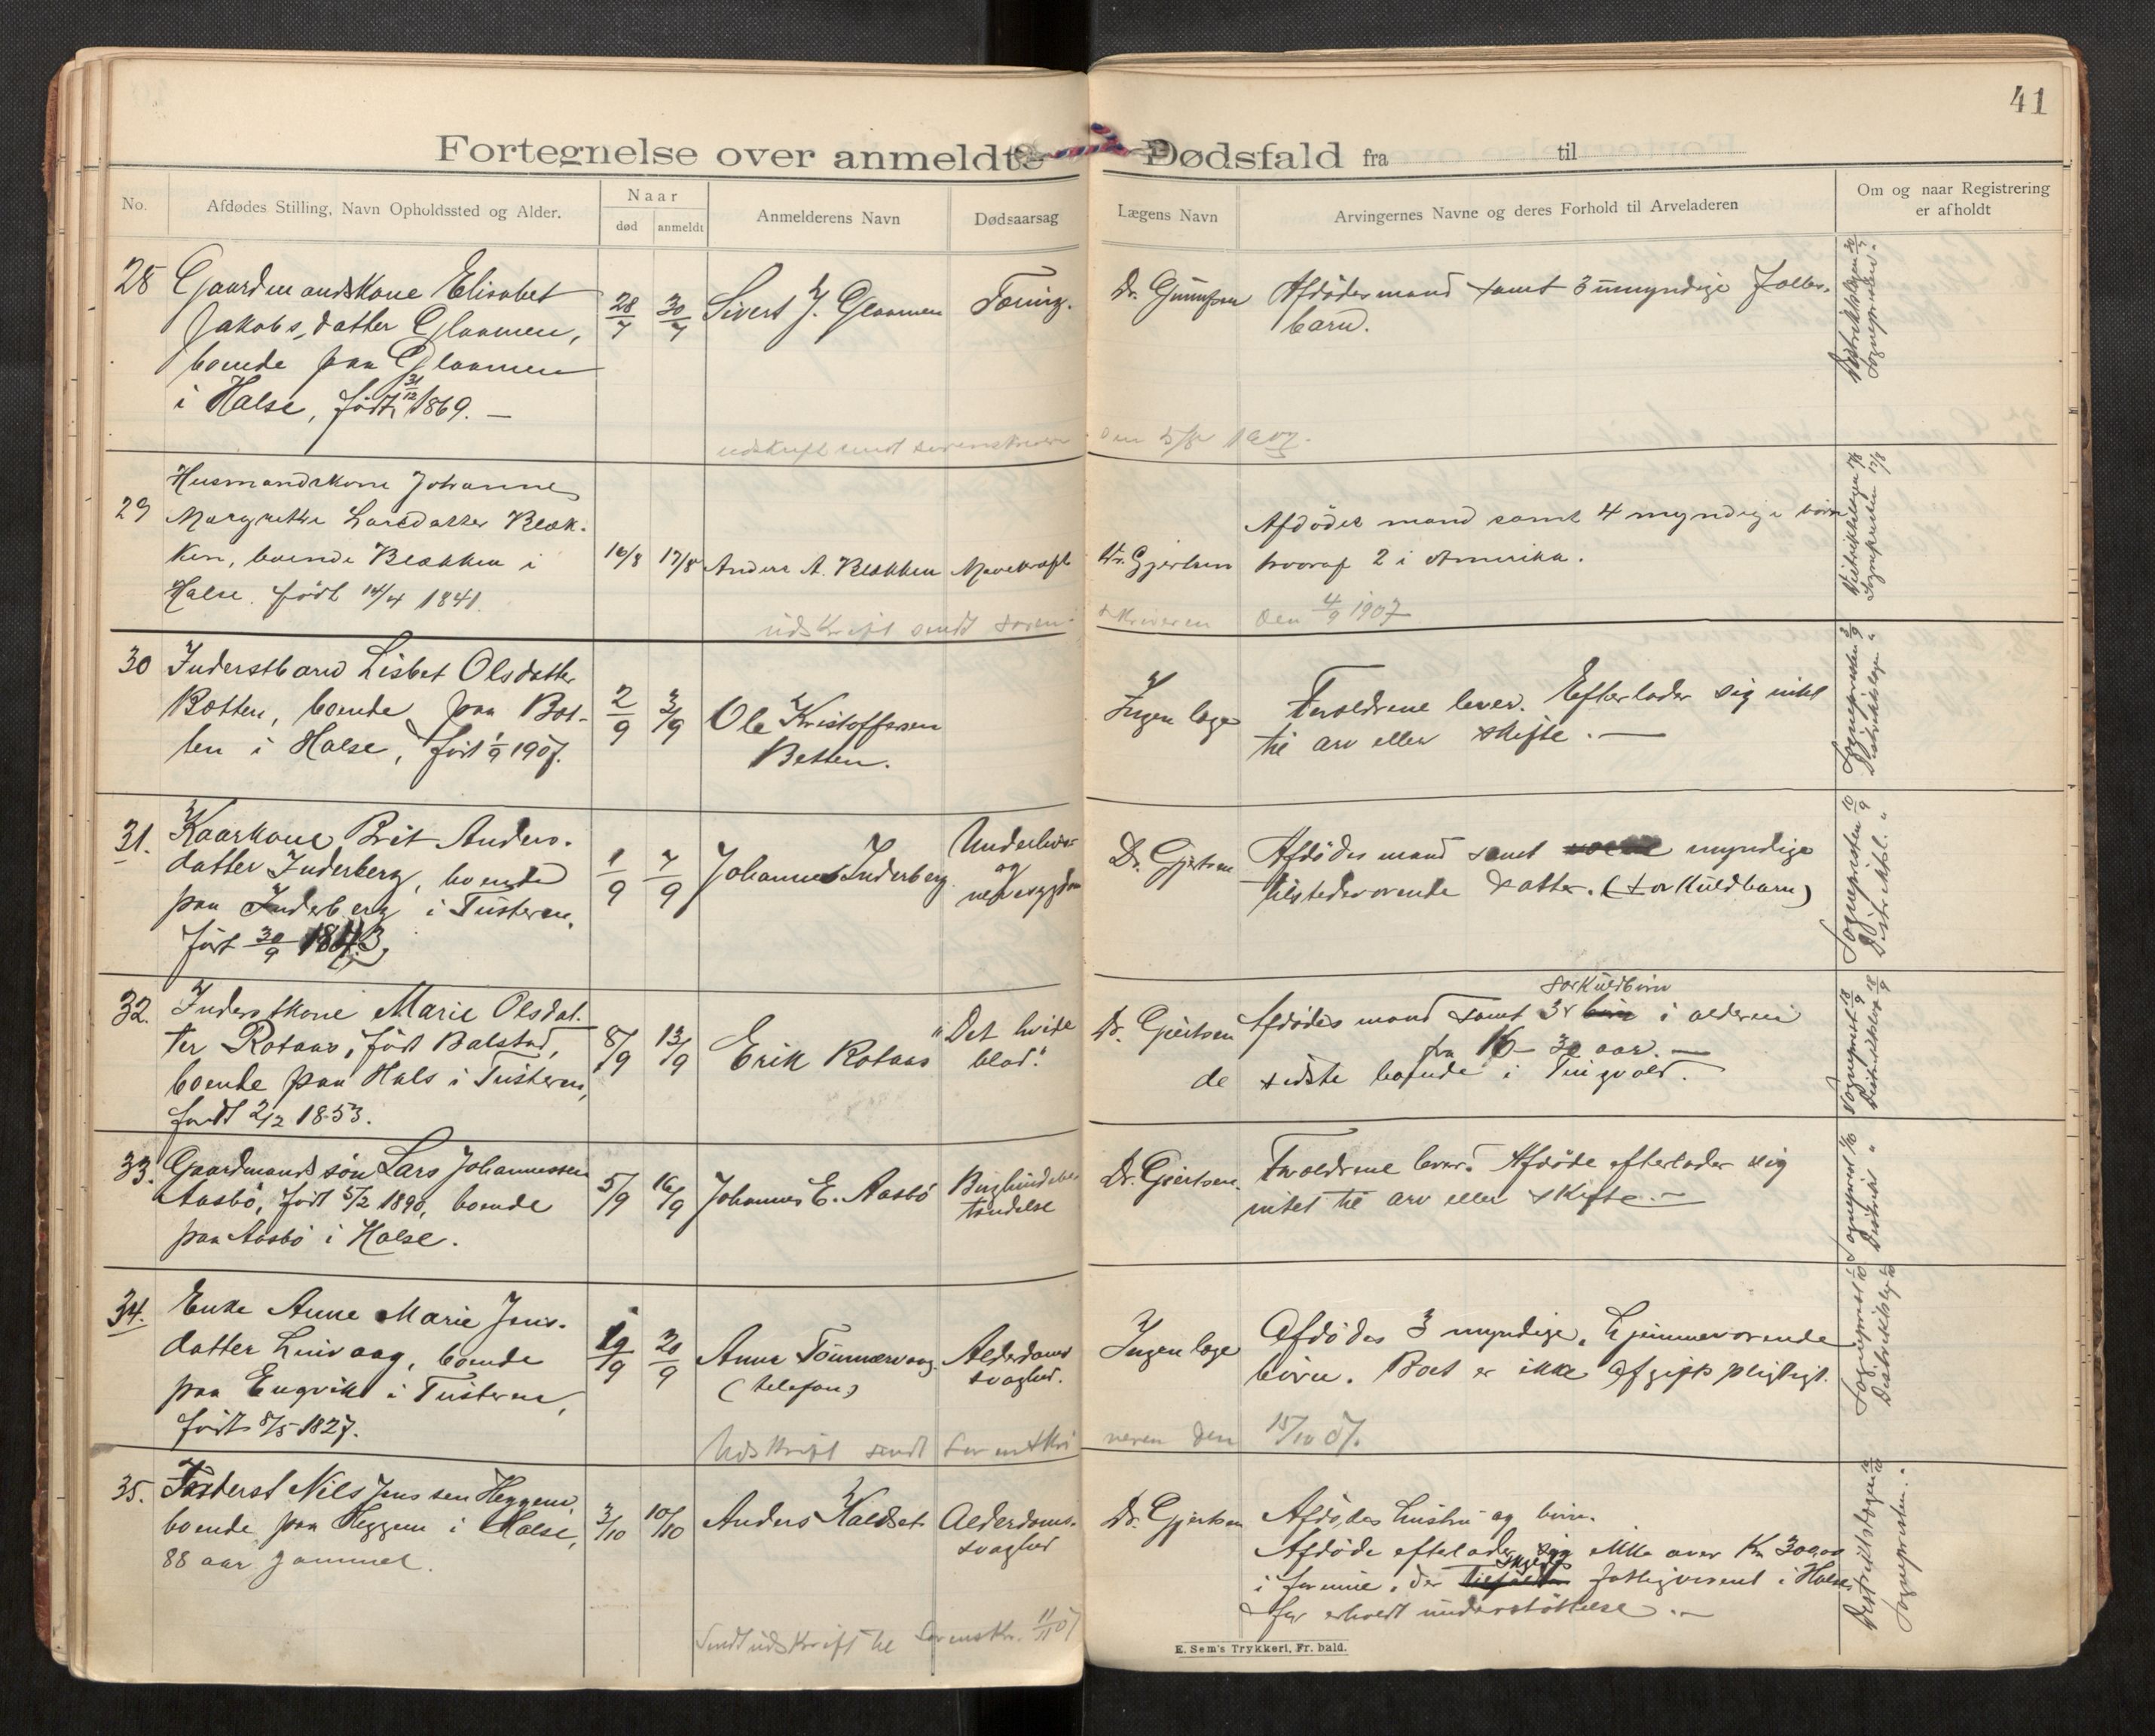 41
Fortegnelse over anmeldte Dødsfald fra til
No.
Afdødes Stilling, Navn Opholdssted og Alder.
Naar
død
anmeldt
Anmelderens Navn
Dødsaarsag
Lægens Navn
Arvingernes Navne og deres Forhold til Arveladeren
Om og naar Registrering
er afholdt
28
Gaardmandskone Elisabet
Jakobsdatter Glaamen,
boende paa Glaamen
i Halse, født 31/12 1869. —
28/7
30/7
Sivert J. Glaamen
Tæring.
Dr.
Afdødes mand samt 3 umyndige
barn.
Distriktslægen
Sognepresten
udskrift sendt sorenskriveren
den 5/8 1907.
29
Husmandskone Johanne
Margrethe Larsdatter Blæk-
ken, boende Blækken i
Halse. født 14/4 1841.
16/8
17/8
Anders A. Blækken
Mavekræft
Dr. Gjertsen
Afdødes mand samt 4 myndige børn
hvoraf 2 i Amerika.
Distriktslægen 17/8
Sognepresten 17/8
udskrift sendt soren-
skriveren den 4/9 1907
30
Inderstbarn Lisbet Olsdatter
Botten, boende paa Bot-
ten i Halse, født 1/9 1907.
2/9
3/9
Ole Kristoffersen
Betten.
Ingen læge
Foreldrene lever. Efterlader sig intet
til arv eller skifte. —
Sognepresten 3/9
Distriktslægen "
31.
Kaarkone Brit Anders-
datter Inderberg, boende
paa Inderberg i Tusteren,
født 30/9 1843,
1/9
7/9
Johannes Inderberg.
Underlivs-
og
nyresygdom
Dr. Gjertsen
Afdødes mand samt myndige
tilstedeværende datter. (særkuldbarn)
Sognepresten 10/9
Distr.
32.
Inderstkone Marie Olsdat-
ter Rotaas, født Balstad,
boende paa Hals i Tusteren,
født 2/2 1853.
8/9
13/9
Erik Rotaas
"Det hvide
blod."
Dr. Gjertsen
særkuldbørn
Afdødes mand samt 3 børn i alderen
fra 16 - 30 aar. —
de sidste boende i Tingvold.
Sogneprest 18/9
Distriktslæge 18/9
33.
Gaardmandssøn Lars Johannessen
Aasbø, født 5/2 1890, boende
paa Aasbø i Halse.
5/9
16/9
Johannes E. Aasbø
Bughindebe-
tændelse
Dr. Gjertsen.
Foreldrene lever. Afdøde efterlader sig
intet til arv eller skifte. —
Sogneprest 1/10
Distrikts "
34.
Enke Anne Marie Jens-
datter Leirvaag, boende
paa Engvik i Tusteren,
født 8/5 1827.
19/9
20/9
Anna Tømmervaag.
(telefon)
Alderdoms-
svaghed.
Ingen læge
Afdødes 3 myndige, hjemmeværende
børn. Boet er ikke afgiftspligtigt.
Sogneprest 1/10
Distriktslæge 1/10
Udskrift sendt Sorenskri-
veren den 15/10 07.
35.
Inderst Nils Jenssen Heggem
boende paa Heggem i Halse,
88 aar gammel.
3/10
10/10
Anders Kaldset
Alderdoms-
svaghed
Dr. Gjertsen
Afdødes hustru og børn.
Afdøde efterlader sig ikke over Kr 300,00
i formue, der tilfalder fattigvæsenet i Halse
for erholdt understøttelse. —
Distriktslægen
Sognepresten "
Sendt udskrift til Sorenskr. 11/11 07
E. Sem's Trykkeri, Fr. hald.